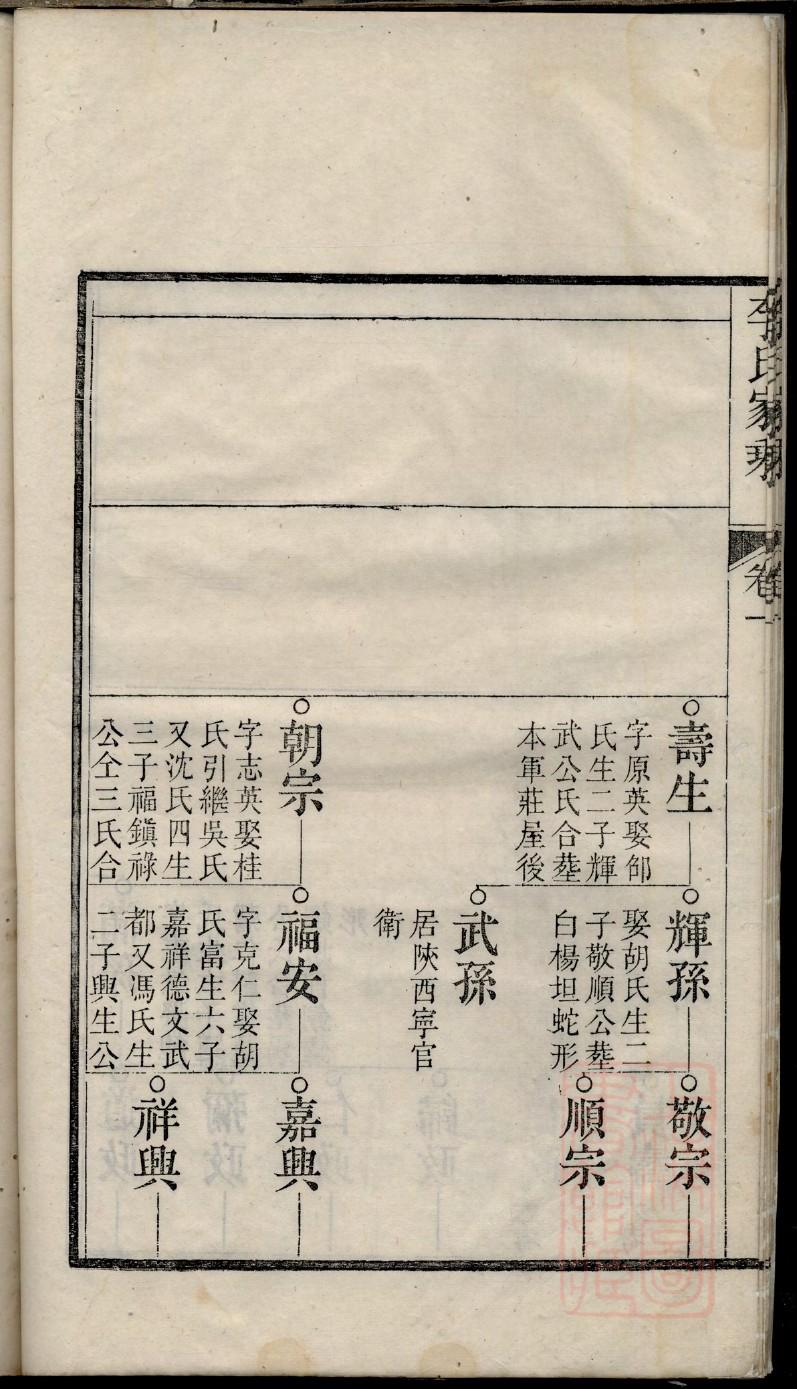 李氏家乘
卷一
壽生
字原英娶邰
氏生二子輝
武公氏合塟
本軍莊屋後
朝宗
字志英娶桂
氏引繼吳氏
又沈氏四生
三子福鎭祿
公仝三氏合
輝孫
娶胡氏生二
子敬順公塟
白楊坦蛇形
武孫
居陜西寧官
衛
福安
字克仁娶胡
氏富生六子
嘉祥德文武
都又馮氏生
二子興生公
敬宗
順宗
嘉興
祥興